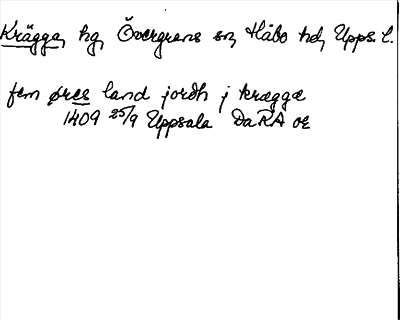 Krägga, hg, Övergrans sn, Håbo hd, Upps. l.
fem øres land jordh j krægge
1409 25/9 Uppsala DaRA or